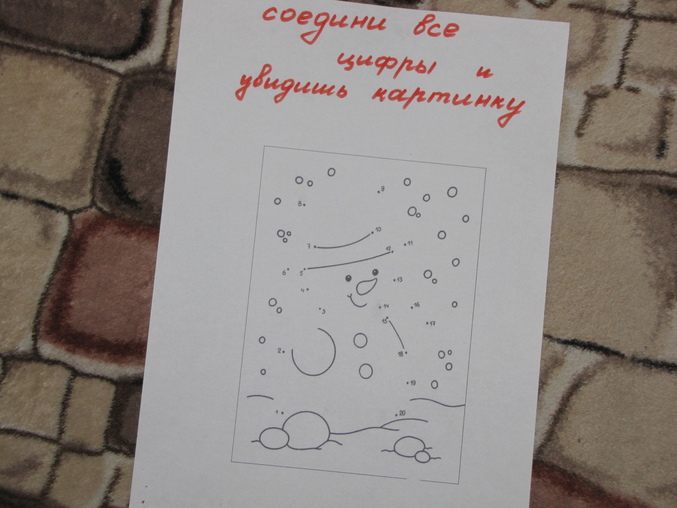 соедини все
цифры и
увидишь картинку
9
8
10
7
11
12
6
5
13
4
14
16
3
15
17
2
18
19
1
20